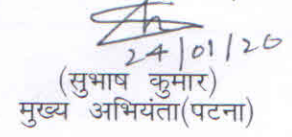 24/01/20
(सुभाष कुमार)
मुख्य अभियंता(पटना)